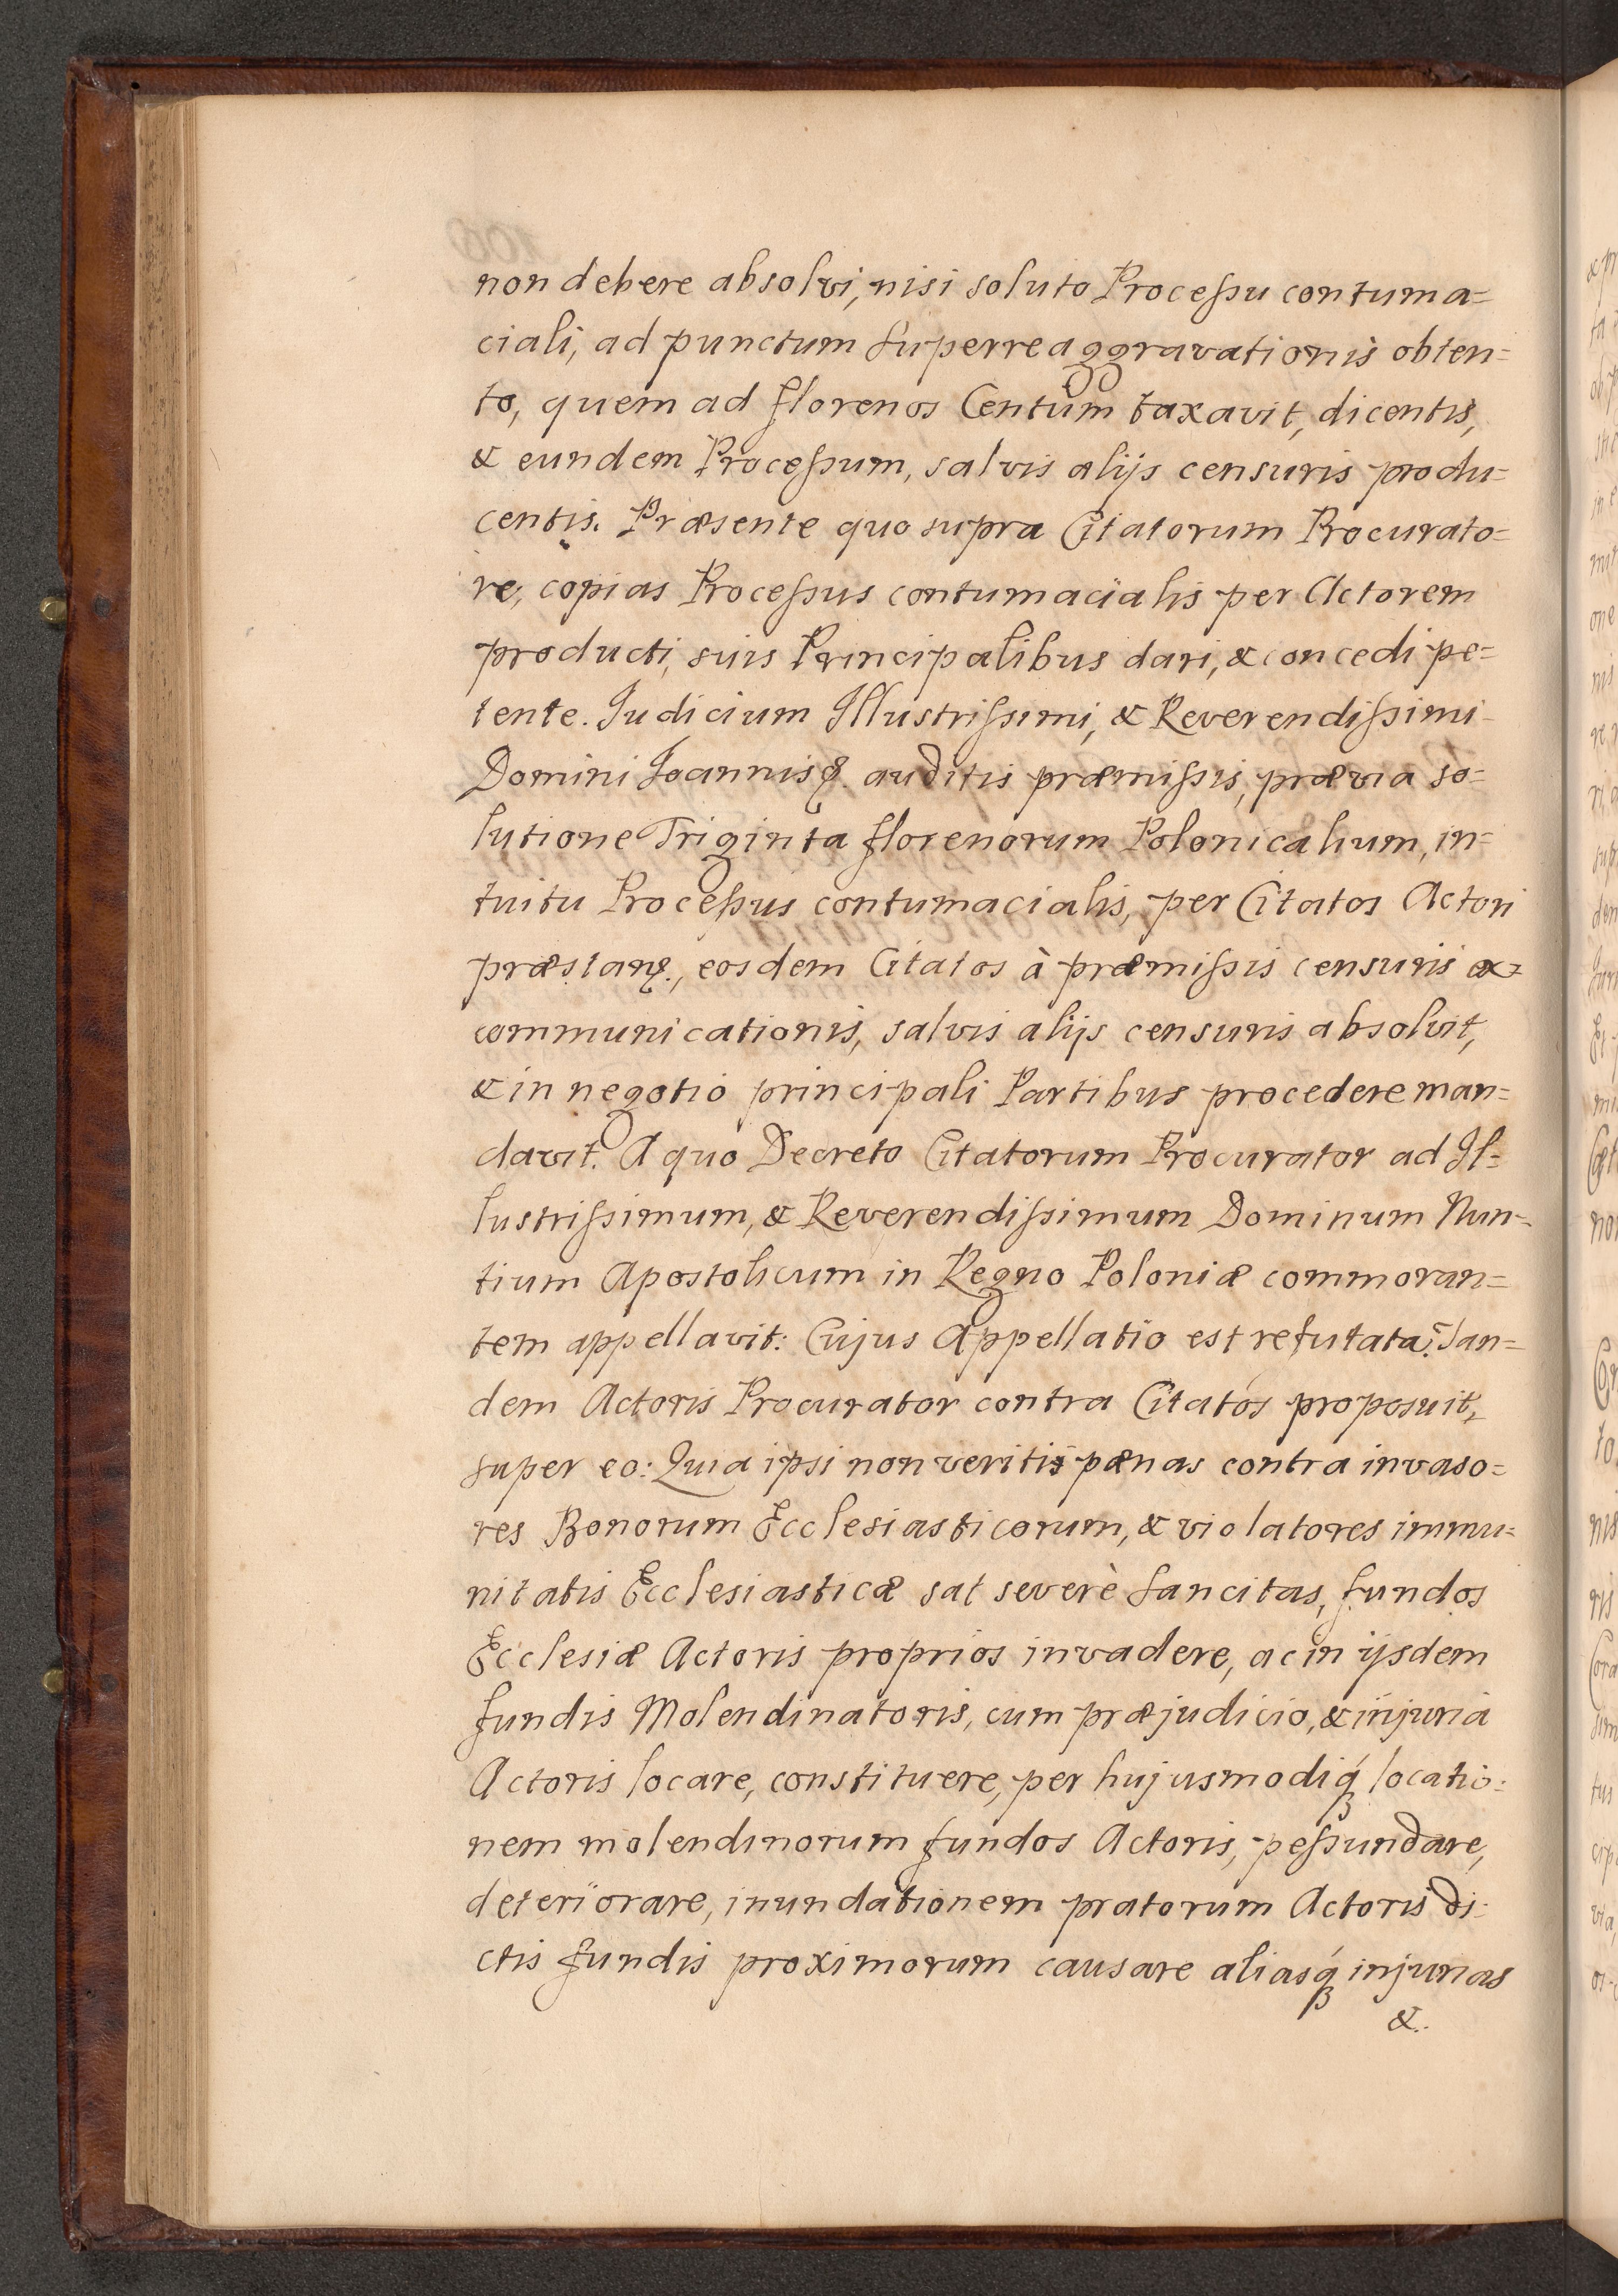 non debere absolvi, nisi soluto Processu contuma=
ciali, ad punctum superreaggravationis obten=
to, quem ad florenos Centum taxavit, dicentis,
& eundem Processum, salvis alijs censuris produ=
centis. Præsente quo supra Citatorum Procurato=
re, copias Processus contumacialis per Actorem
producti, suis Principalibus dari, & concedi pe=
tente. Judicium Illustrissimi, & Reverendissimi
Domini Joannis auditis præmissis, prævia so=
lutione Triginta florenorum Polonicalium, in=
tuitu Processus contumacialis, per Citatos Actori
eosdem Citatos à præmissis censuris ex=
communicationis, salvis alijs censuris absolvit,
& in negotio principali Partibus procedere man=
davit. A quo Decreto Citatorum Procurator ad Il=
lustrissimum, & Reverendissimum Dominum Nun=
tium Apostolicum in Regno Poloniæ commoran=
tem appellavit: Cujus Appellatio est refutata. Tan=
dem Actoris Procurator contra Citatos proposuit,
super eo: Quia ipsi non veritis pænas contra invaso=
res Bonorum Ecclesiasticorum, & violatores immu=
nitatis Ecclesiasticæ sat severè sancitas, fundos
Ecclesiæ Actoris proprios invadere, ac in ijsdem
fundis Molendinatoris, cum præjudicio, & injuria
Actoris locare, constituere, per hujusmodiq́ locatio=
nem molendinorum fundos Actoris, pessundare,
deteriorare, inundationem pratorum Actoris di=
ctis fundis proximorum causare aliasq́ injurias
&.